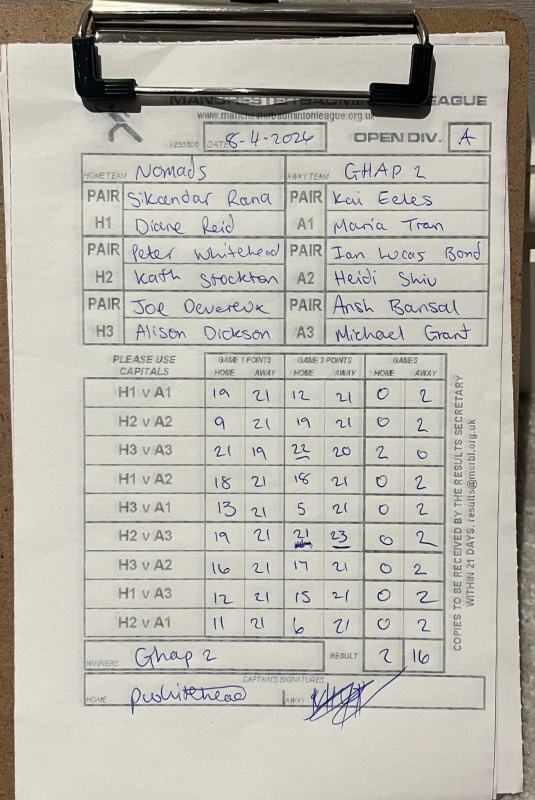 MANCHESTER BADMINTON LEAGUE
www.manchesterbadmintonleague.org.uk
DATE 8-4-2024 OPEN DIV. A
HOME TEAM Nomads AWAY TEAM GHAP 2
PAIR Sikandar Rana PAIR Kai Eeles
H1 Diane Reid A1 Maria Tran
PAIR Peter Whitehead PAIR Ian Lucas Bond
H2 Kath Stockton A2 Heidi Shiu
PAIR Joe Devereux PAIR Ansh Bansal
H3 Alison Dickson A3 Michael Grant
PLEASE USE CAPITALS GAME 1 POINTS GAME 2 POINTS GAMES
HOME AWAY HOME AWAY HOME AWAY
H1 v A1 19 21 12 21 0 2
H2 v A2 9 21 19 21 0 2
H3 v A3 21 19 22 20 2 0
H1 v A2 18 21 18 21 0 2
H3 v A1 13 21 5 21 0 2
H2 v A3 19 21 21 23 0 2
H3 v A2 16 21 17 21 0 2
H1 v A3 12 21 15 21 0 2
H2 v A1 11 21 6 21 0 2
WINNERS Ghap 2 RESULT 2 16
CAPTAIN'S SIGNATURES
HOME pwhitehead AWAY
COPIES TO BE RECEIVED BY THE RESULTS SECRETARY
WITHIN 21 DAYS. results@mcrbl.org.uk